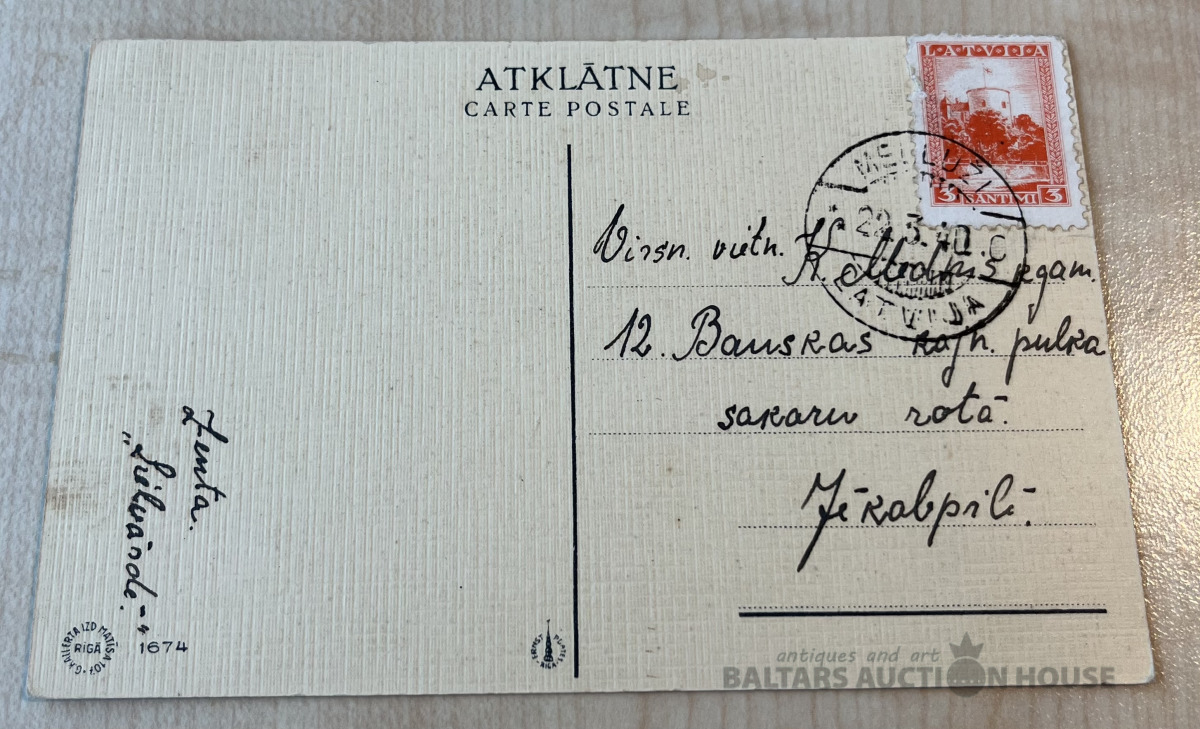 ATKLĀTNE
CARTE POSTALE
LATVIJA
3 SANTIMI 3
22.3.40.C
LATVIJA
Virsn. vietn. K. kgam.
12. Bauskas kājn. pulka
sakaru rotā.
Jēkabpilī.
Zenta.
"Lielvārde."
RĪGĀ
1674
antiques and art
BALTARS AUCTION HOUSE